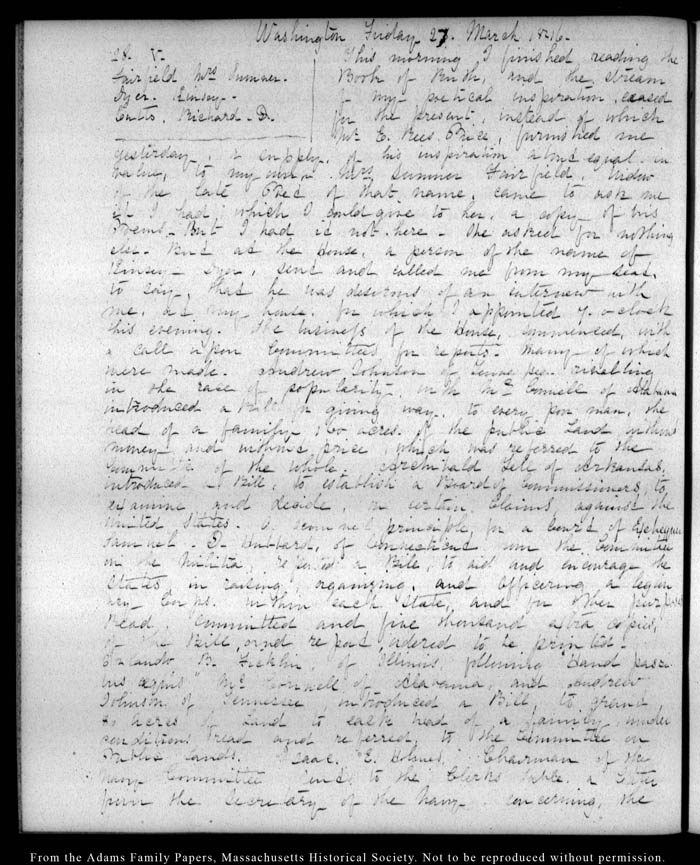 Washington Friday 27. March 1846.
28. V.
Fairfield Mrs Sumner.
Dyer. Kinsey.
Cutts. Richard. D.
This morning I finished reading the
Book of Ruth, and the stream
of my poetical inspiration ceased
for the present, instead of which
Mr E. Rees Price, furnished me
yesterday, a supply of his inspiration about equal in
value, to my own. Mrs Sumner Fairfield, Widow
of the late Poet of that name, came to ask me
if I had, which I could give to her, a copy of his
Poems. But I had it not here. She asked for nothing
else. But at the House, a person of the name of
Kinsey Dyer, sent and called me from my seat,
to say, that he was desirous of an interview with
me, at my house. for which I appointed 7. o-clock
this evening. The business of the House, commenced, with
a call upon Committees for reports. Many of which
were made. Andrew Johnson of rivalling
in the race of popularity, with McConnell of Alabama
introduced a Bill for giving away, to every poor man, the
head of a family, 160 acres. of the public Land without
money and without price, which was referred to the
Committee of the whole. Archibald Yell of Arkansas,
introduced a Bill, to establish a Board of Commissioners, to
examine and decide, on certain Claims, against the
United States. A principle, for a Court of Exchequer
Samuel D. Hubbard, of Connecticut from the Committee
on the Militia, reported a Bill, to aid and encourage the
States, in raising, organizing, and officering a
Corps. within each State, and for other purposes
Read. Committed and five thousand extra copies,
of the Bill, and report, ordered to be printed.
Orlando B. Ficklin, of Illinois, following
McConnell of Alabama, and Andrew
Johnson of Tennessee, introduced a Bill, to grant
acres of Land to each head of a family, under
conditions read and referred, to the Committee on
Public Lands. Isaac. E. Holmes, Chairman of the
Navy Committee sent to the Clerks table. a letter
from the Secretary of the Navy. concerning, the
From the Adams Family Papers, Massachusetts Historical Society. Not to be reproduced without permission.